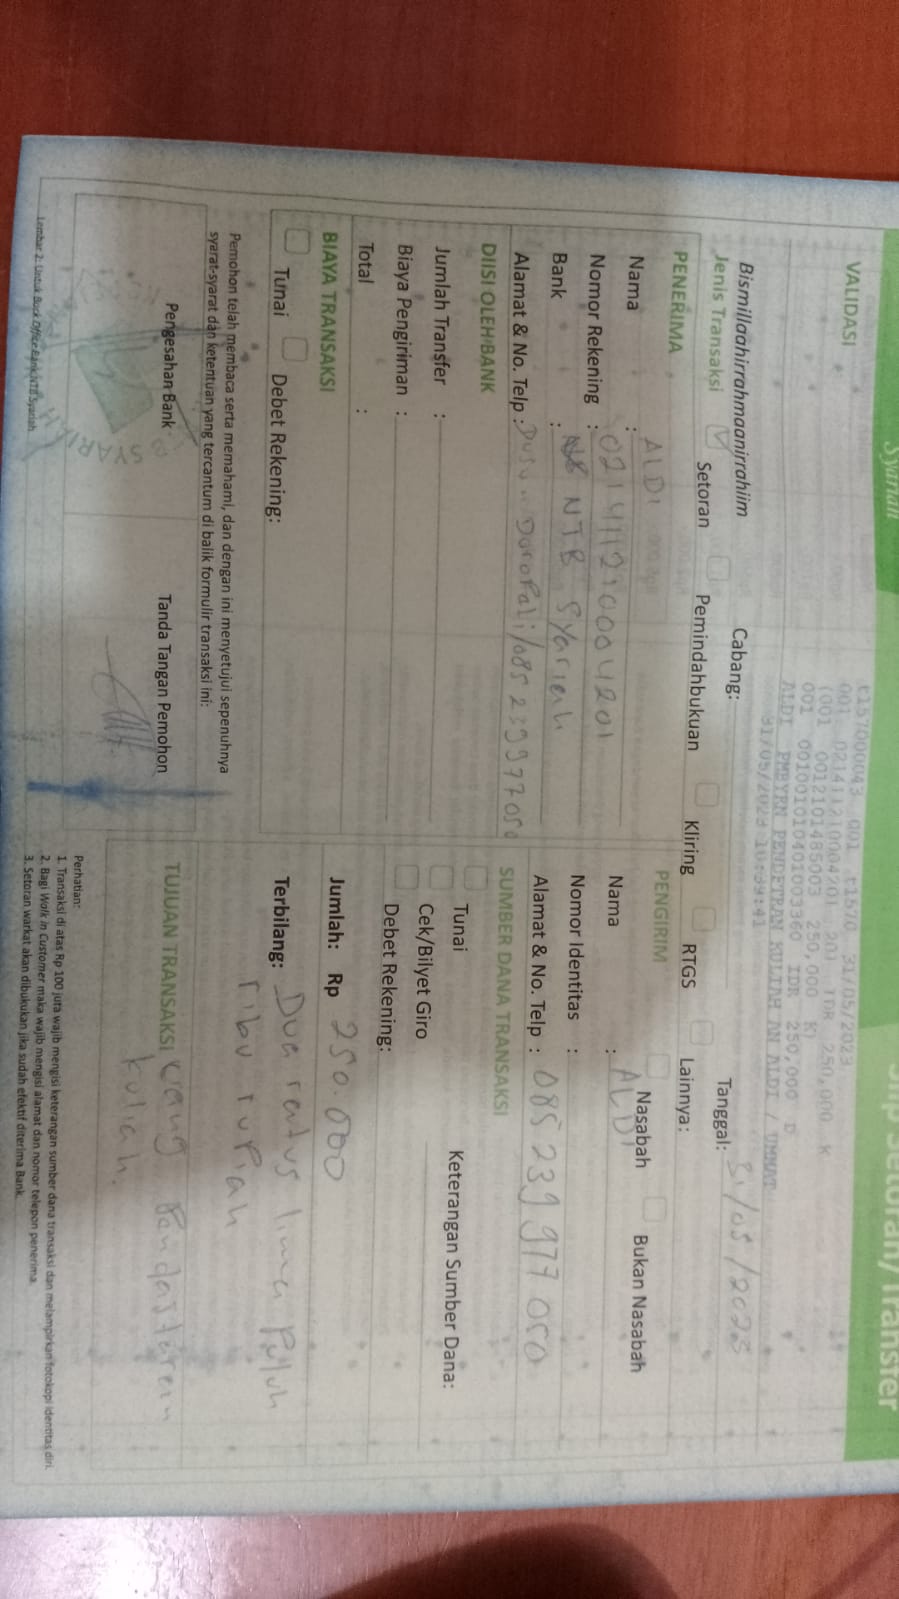 Syariah
Slip Setoran/Transfer
VALIDASI
t157000043 001 t1570 31/05/2023
001 021411210004201 201 IDR 250,000 K
(001 0012101485003 250,000 K)
001 001001010401003360 IDR 250,000 D
ALDI PMBYRN PENDFTRAN KULIAH AN ALDI / UMMAT
31/05/2023 10:39:41
Bismillaahirrahmaanirrahiim
Cabang:
Tanggal: 31/05/2023
Jenis Transaksi
Setoran
Pemindahbukuan
Kliring
RTGS
Lainnya:
PENERIMA
Nama : ALDI
Nomor Rekening :
Bank : NTB Syariah
Alamat & No. Telp : Dusun Doropati/085239977050
PENGIRIM
Nasabah
Bukan Nasabah
Nama : ALDI
Nomor Identitas :
Alamat & No. Telp : 085239977050
DIISI OLEH BANK
Jumlah Transfer :
Biaya Pengiriman :
Total :
SUMBER DANA TRANSAKSI
Tunai
Cek/Bilyet Giro
Debet Rekening:
Keterangan Sumber Dana:
BIAYA TRANSAKSI
Tunai
Debet Rekening:
Jumlah: Rp 250.000
Terbilang: Dua ratus lima puluh
ribu rupiah
Pemohon telah membaca serta memahami, dan dengan ini menyetujui sepenuhnya
syarat-syarat dan ketentuan yang tercantum di balik formulir transaksi ini:
Pengesahan Bank
Tanda Tangan Pemohon
SYARIAH
TUJUAN TRANSAKSI uang Pendaftaran
kuliah.
Lembar 2: Untuk Back Office Bank NTB Syariah
Perhatian:
1. Transaksi di atas Rp 100 juta wajib mengisi keterangan sumber dana transaksi dan melampirkan fotokopi identitas diri.
2. Bagi Walk in Customer maka wajib mengisi alamat dan nomor telepon penerima.
3. Setoran warkat akan dibukukan jika sudah efektif diterima Bank.